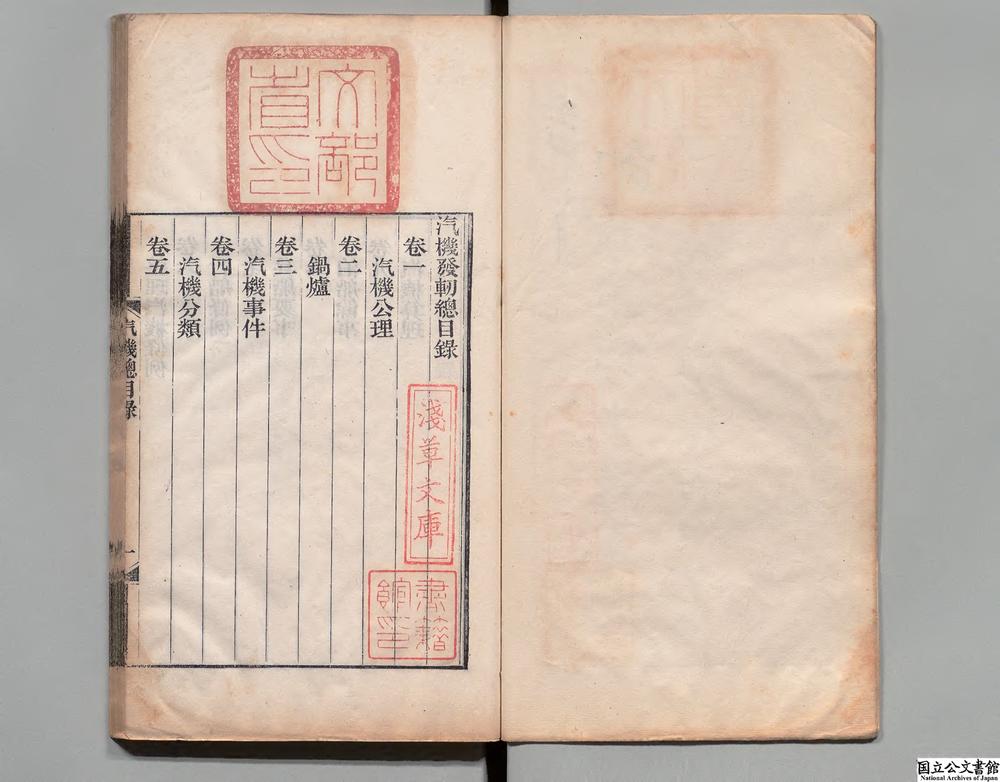 文部
省印
汽機發軔總目錄
卷一
汽機公理
卷二
鍋爐
卷三
汽機事件
卷四
汽機分類
卷五
汽機總目錄
一
淺草文庫
書籍
館印
国立公文書館
National Archives of Japan